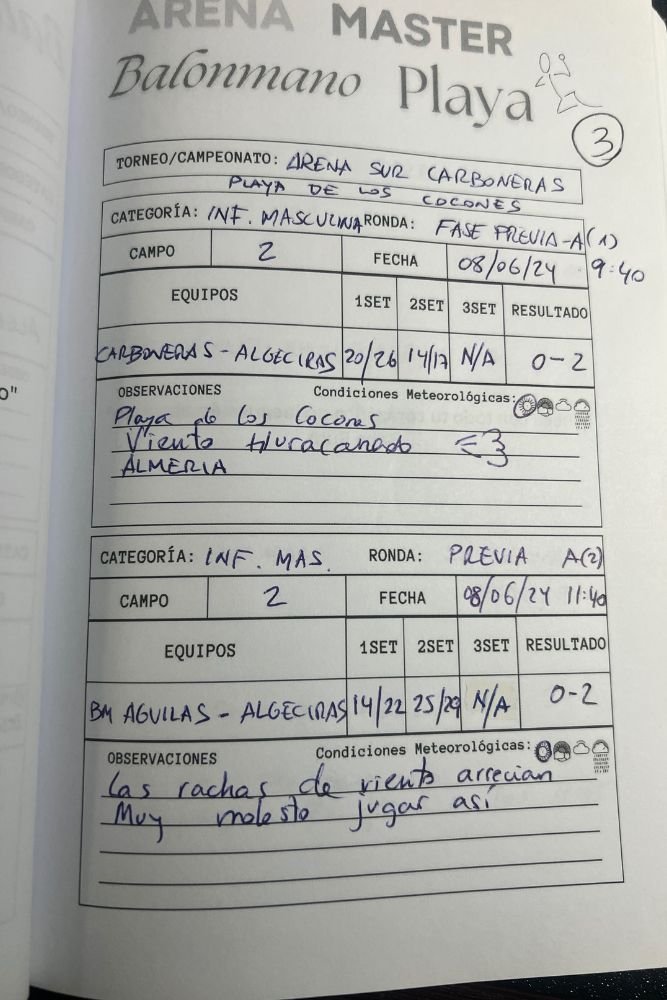 ARENA MASTER
Balonmano Playa
3
TORNEO/CAMPEONATO: ARENA SUR CARBONERAS
PLAYA DE LOS COCONES
CATEGORÍA: INF. MASCULINA RONDA: FASE PREVIA-A(1)
CAMPO 2 FECHA 08/06/24 9:40
EQUIPOS 1SET 2SET 3SET RESULTADO
CARBONERAS - ALGECIRAS 20/26 14/17 N/A 0-2
OBSERVACIONES Condiciones Meteorológicas:
Playa de los Cocones
Viento Huracanado
ALMERIA
CATEGORÍA: INF. MAS. RONDA: PREVIA A(2)
CAMPO 2 FECHA 08/06/24 11:40
EQUIPOS 1SET 2SET 3SET RESULTADO
BM AGUILAS - ALGECIRAS 14/22 25/29 N/A 0-2
OBSERVACIONES Condiciones Meteorológicas:
Las rachas de viento arrecian
Muy molesto jugar así